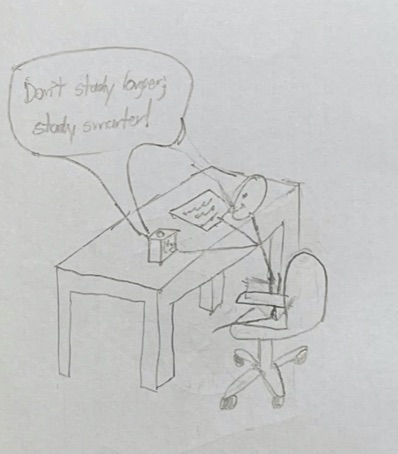 Don't study longer,
study smarter!